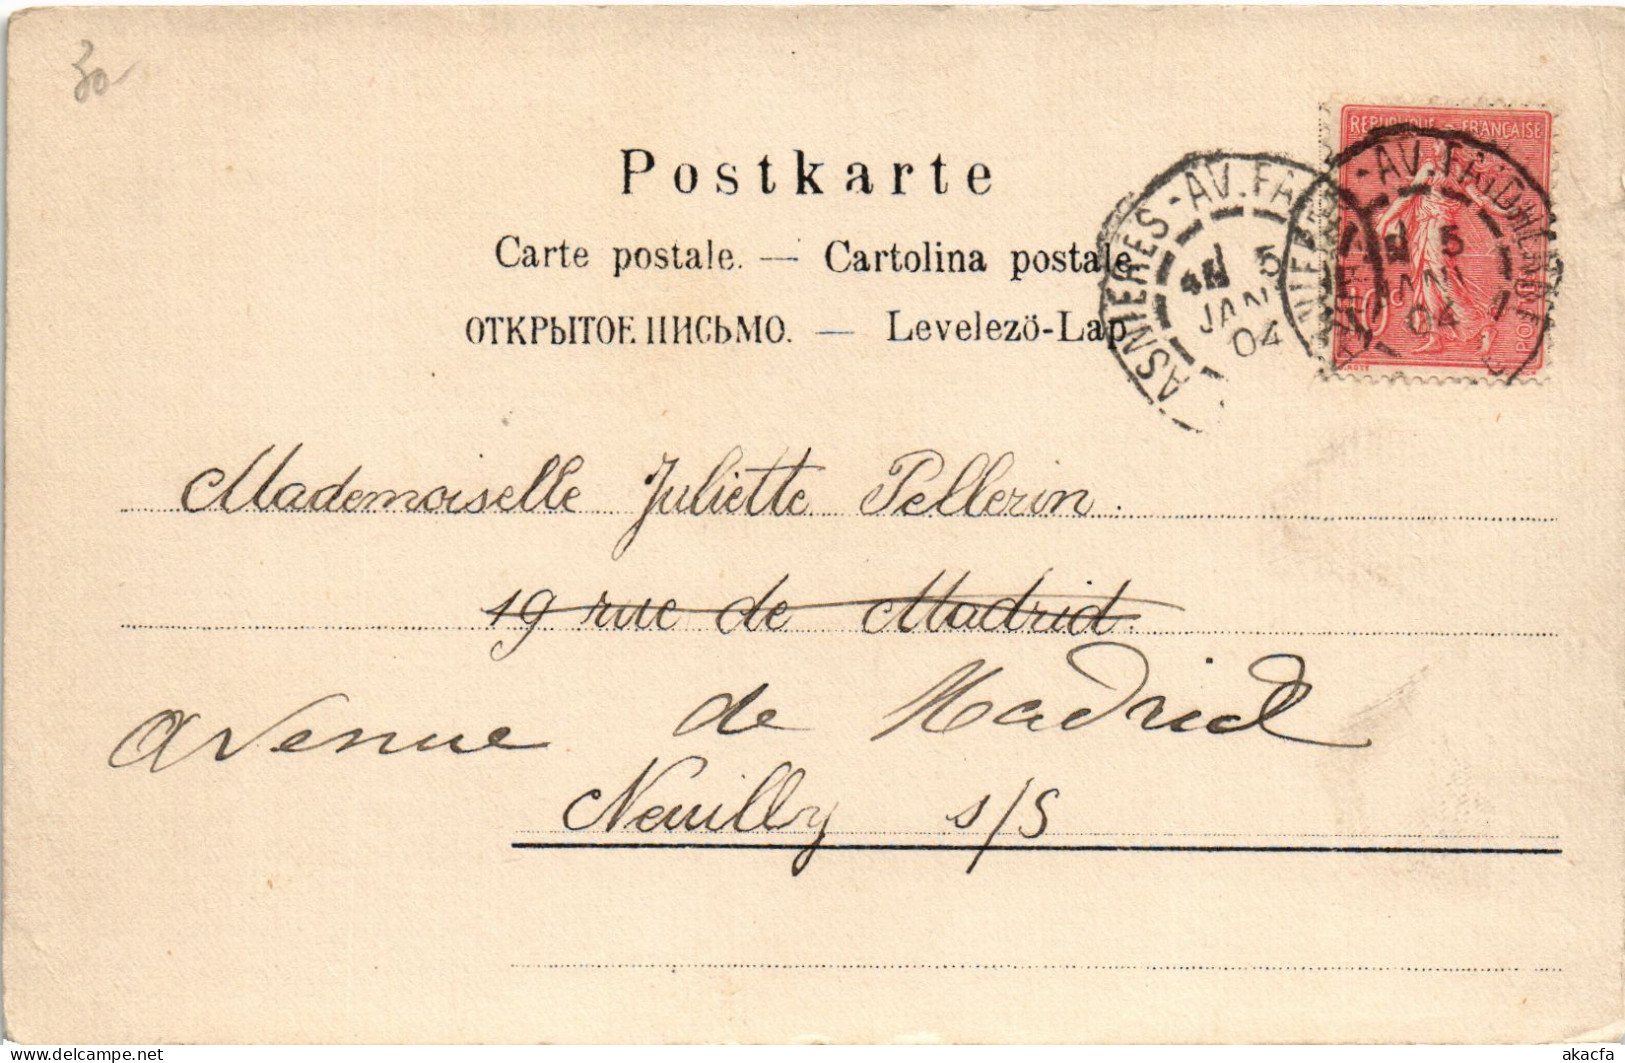 30-
Postkarte
Carte postale. — Cartolina postale
ОТКРЫТОЕ ПИСЬМО. — Levelezö-Lap
REPUBLIQUE FRANÇAISE
ASNIERES - AV. FAIDHERBE
5
JANV
04
Mademoiselle Juliette Pellerin.
19 rue de Madrid.
Avenue de Madrid
Neuilly s/S
delcampe.net
akacfa